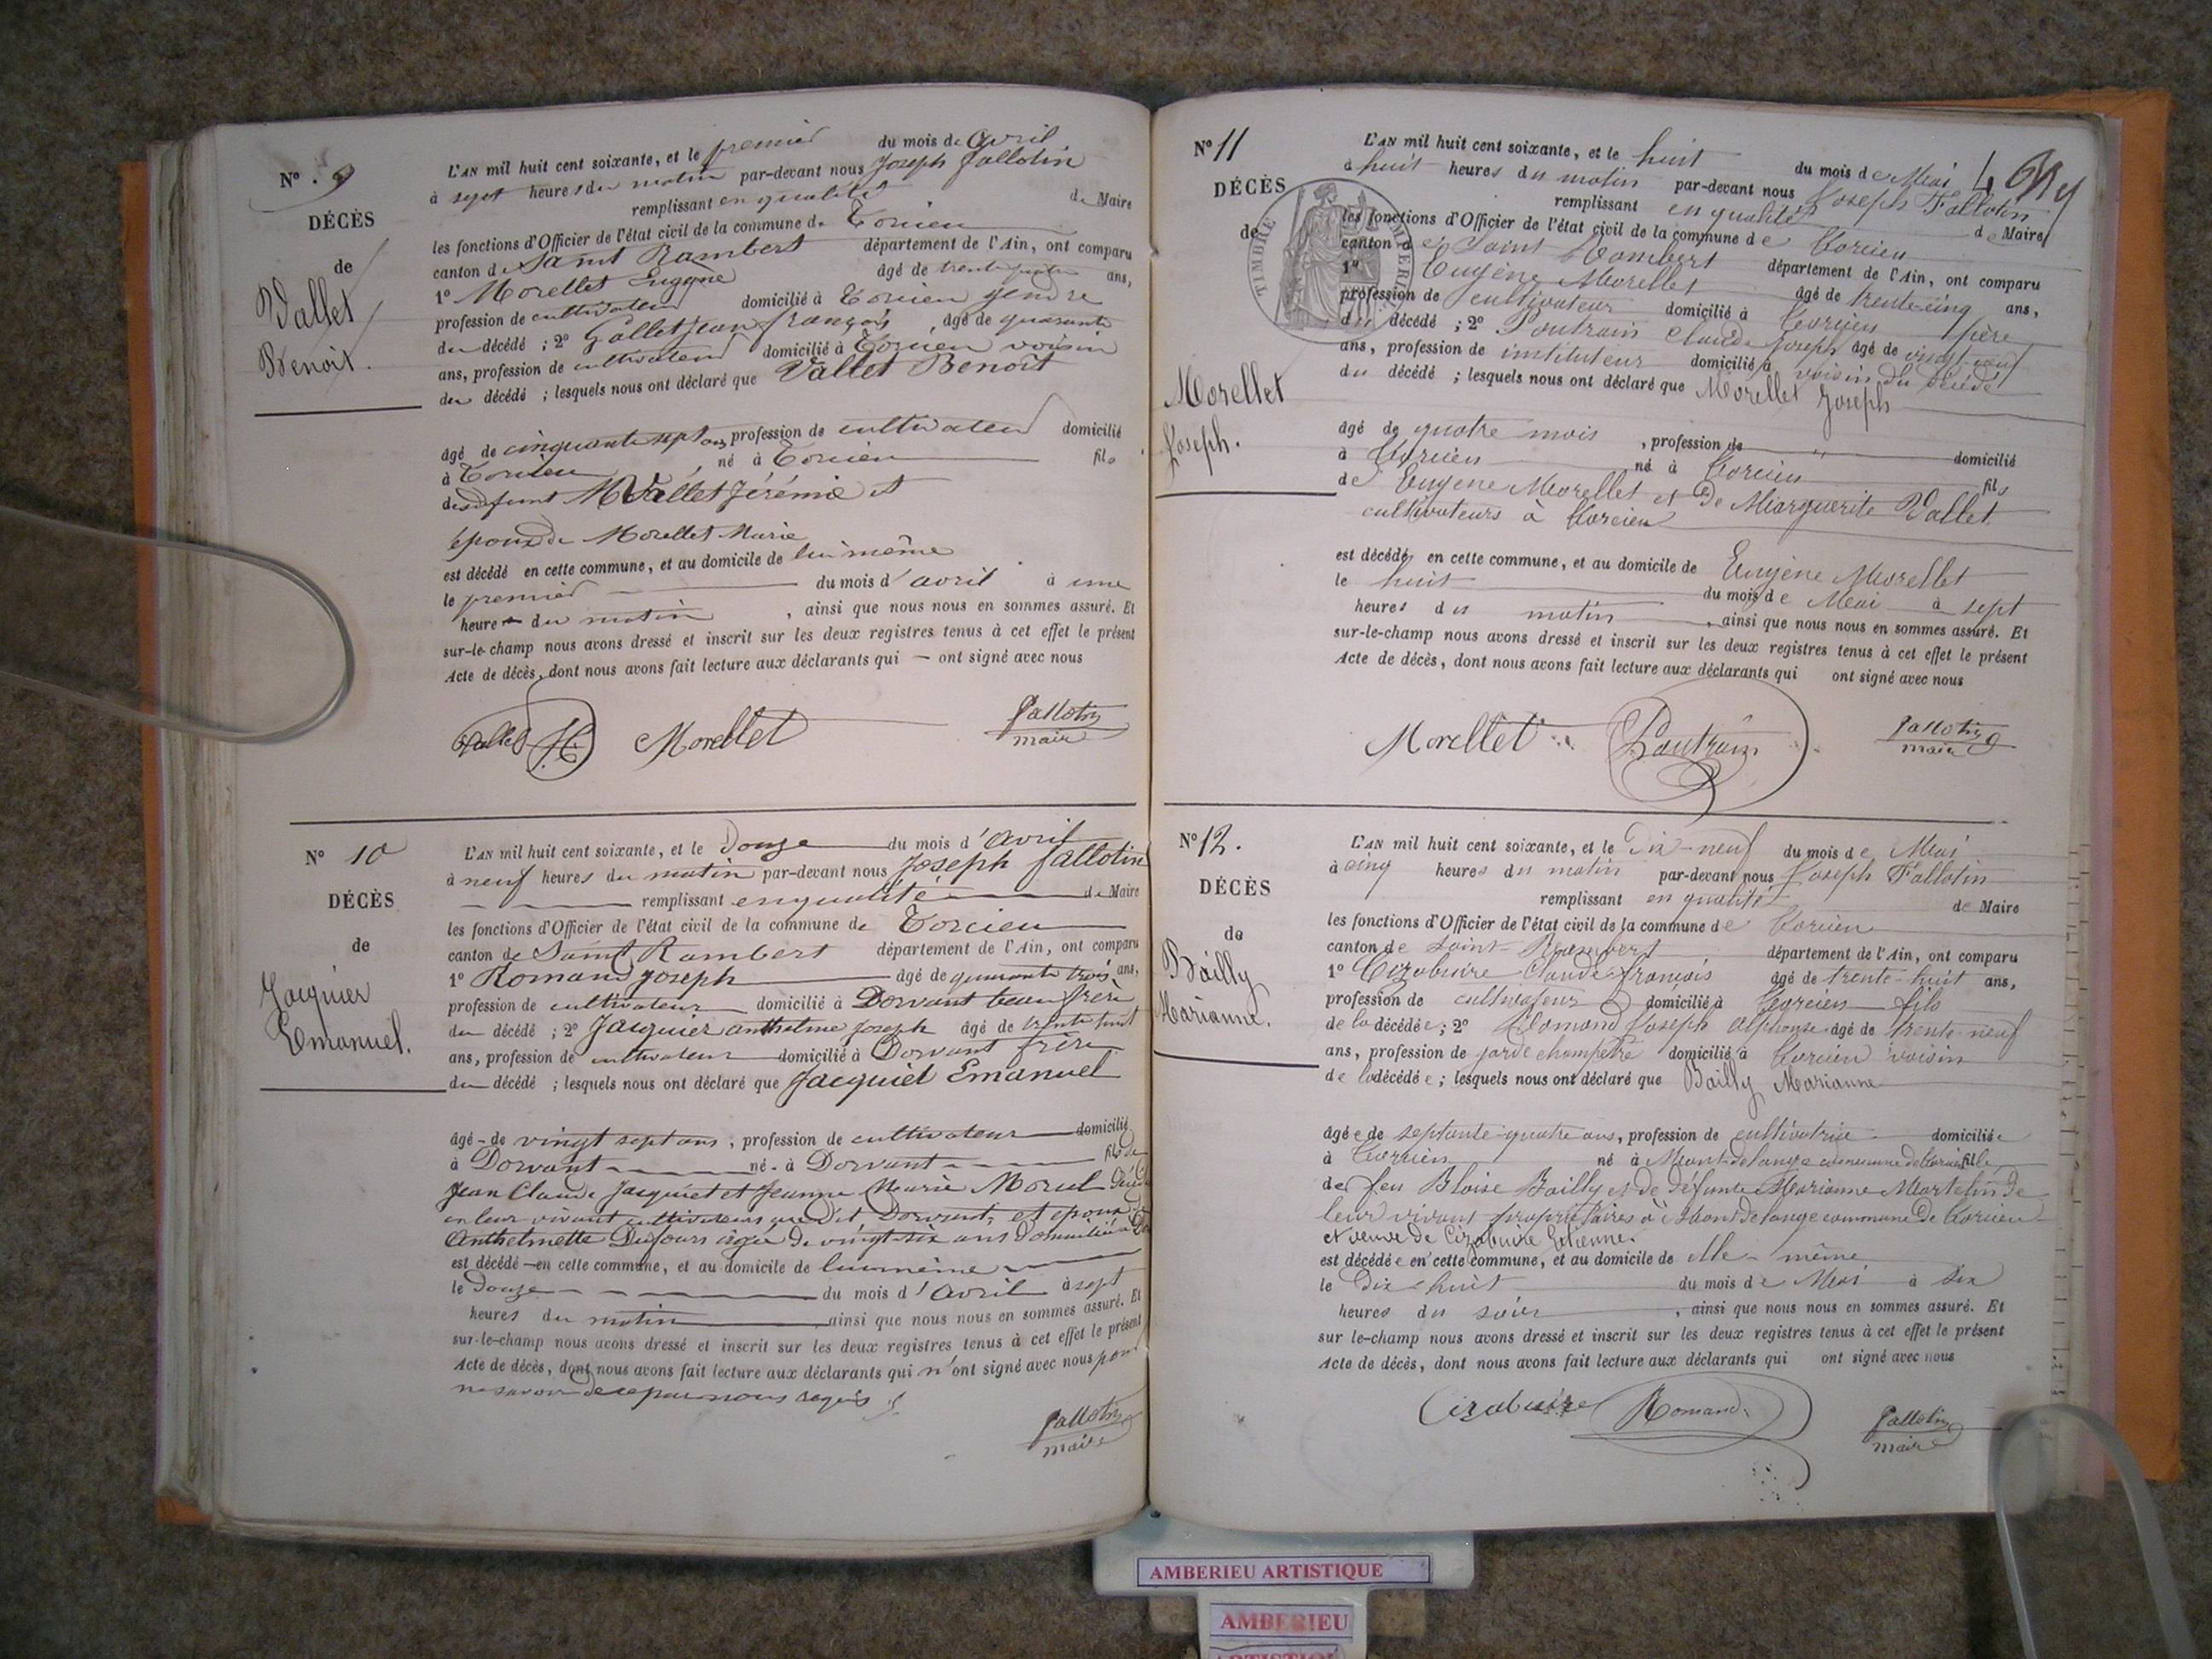 N° 9
DÉCÈS
de
Vallet
Benoit.
L'AN mil huit cent soixante, et le premier du mois de Avril
à sept heures du matin par-devant nous Joseph fallotin
remplissant en qualité de Maire
les fonctions d'Officier de l'état civil de la commune de Torcieu
canton de Saint Rambert département de l'Ain, ont comparu
1° Morellet Eugène âgé de trente ans,
profession de cultivateur domicilié à Torcieu gendre
du décédé ; 2° Jean françois, âgé de quarante
ans, profession de cultivateur domicilié à Torcieu voisin
du décédé ; lesquels nous ont déclaré que Vallet Benoit
âgé de cinquante sept ans, profession de cultivateur domicilié
à Torcieu né à Torcieu fils
de défunt Vallet Jérémie et
époux de Morellet Marie
est décédé en cette commune, et au domicile de lui même
le premier du mois d'avril à une
heure du matin, ainsi que nous nous en sommes assuré. Et
sur-le-champ nous avons dressé et inscrit sur les deux registres tenus à cet effet le présent
Acte de décès, dont nous avons fait lecture aux déclarants qui ont signé avec nous
Morellet fallotin
maire
N° 10
DÉCÈS
de
Jacquier
Emanuel.
L'AN mil huit cent soixante, et le Douze du mois d'Avril
à neuf heures du matin par-devant nous Joseph fallotin
remplissant en qualité de Maire
les fonctions d'Officier de l'état civil de la commune de Torcieu
canton de Saint Rambert département de l'Ain, ont comparu
1° Romand Joseph âgé de quarante trois ans,
profession de cultivateur domicilié à Dorvant beau frère
du décédé ; 2° Jacquier anthelme Joseph âgé de trente huit
ans, profession de cultivateur domicilié à Dorvant frère
du décédé ; lesquels nous ont déclaré que Jacquiet Emanuel
âgé de vingt sept ans, profession de cultivateur domicilié
à Dorvant né à Dorvant fils de
Jean Claude Jacquiet et Jeanne Marie Morel
en leur vivant cultivateurs au dit Dorvant, et époux
Anthelmette Dufours âgée de vingt six ans domiciliée
est décédé en cette commune, et au domicile de lui même
le Douze du mois d'Avril à sept
heures du matin ainsi que nous nous en sommes assuré. Et
sur-le-champ nous avons dressé et inscrit sur les deux registres tenus à cet effet le présent
Acte de décès, dont nous avons fait lecture aux déclarants qui n'ont signé avec nous pour
ne savoir de ce par nous requis
fallotin
maire
N° 11
DÉCÈS
de
Morellet
Joseph.
TIMBRE
L'AN mil huit cent soixante, et le huit du mois de Mai
à huit heures du matin par-devant nous Joseph Fallotin
remplissant en qualité de Maire
les fonctions d'Officier de l'état civil de la commune de Torcieu
canton de Saint Rambert département de l'Ain, ont comparu
1° Eugène Morellet âgé de trente-cinq ans,
profession de cultivateur domicilié à Torcieu père
du décédé ; 2° Poutrain Claude Joseph âgé de vingt-neuf
ans, profession de instituteur domicilié à voisin du décédé
du décédé ; lesquels nous ont déclaré que Morellet Joseph
âgé de quatre mois, profession de " domicilié
à Torcieu né à Torcieu fils
de Eugène Morellet et de Marguerite Vallet
cultivateurs à Torcieu
est décédé en cette commune, et au domicile de Eugène Morellet
le huit du mois de Mai à sept
heures du matin, ainsi que nous nous en sommes assuré. Et
sur-le-champ nous avons dressé et inscrit sur les deux registres tenus à cet effet le présent
Acte de décès, dont nous avons fait lecture aux déclarants qui ont signé avec nous
Morellet Poutrain fallotin
maire
N° 12.
DÉCÈS
de
Bailly
Marianne.
L'AN mil huit cent soixante, et le Dix-neuf du mois de Mai
à cinq heures du matin par-devant nous Joseph Fallotin
remplissant en qualité de Maire
les fonctions d'Officier de l'état civil de la commune de Torcieu
canton de Saint-Rambert département de l'Ain, ont comparu
1° Cizabuire Claude françois âgé de trente-huit ans,
profession de cultivateur domicilié à Torcieu fils
de la décédée ; 2° Romand Joseph Alphonse âgé de trente-neuf
ans, profession de garde champêtre domicilié à Torcieu voisin
de la décédée ; lesquels nous ont déclaré que Bailly Marianne
âgée de septante-quatre ans, profession de cultivatrice domiciliée
à Torcieu né à Mont-de-lange commune de Torcieu fille
de feu Blaise Bailly et de défunte Marianne Martelin de
leur vivant propriétaires à Mont de lange commune de Torcieu
et veuve de Cizabuire Etienne.
est décédée en cette commune, et au domicile de elle-même
le Dix-huit du mois de Mai à six
heures du soir, ainsi que nous nous en sommes assuré. Et
sur le-champ nous avons dressé et inscrit sur les deux registres tenus à cet effet le présent
Acte de décès, dont nous avons fait lecture aux déclarants qui ont signé avec nous
Cizabuire Romand fallotin
maire
AMBERIEU ARTISTIQUE
AMBERIEU
ARTISTIQUE